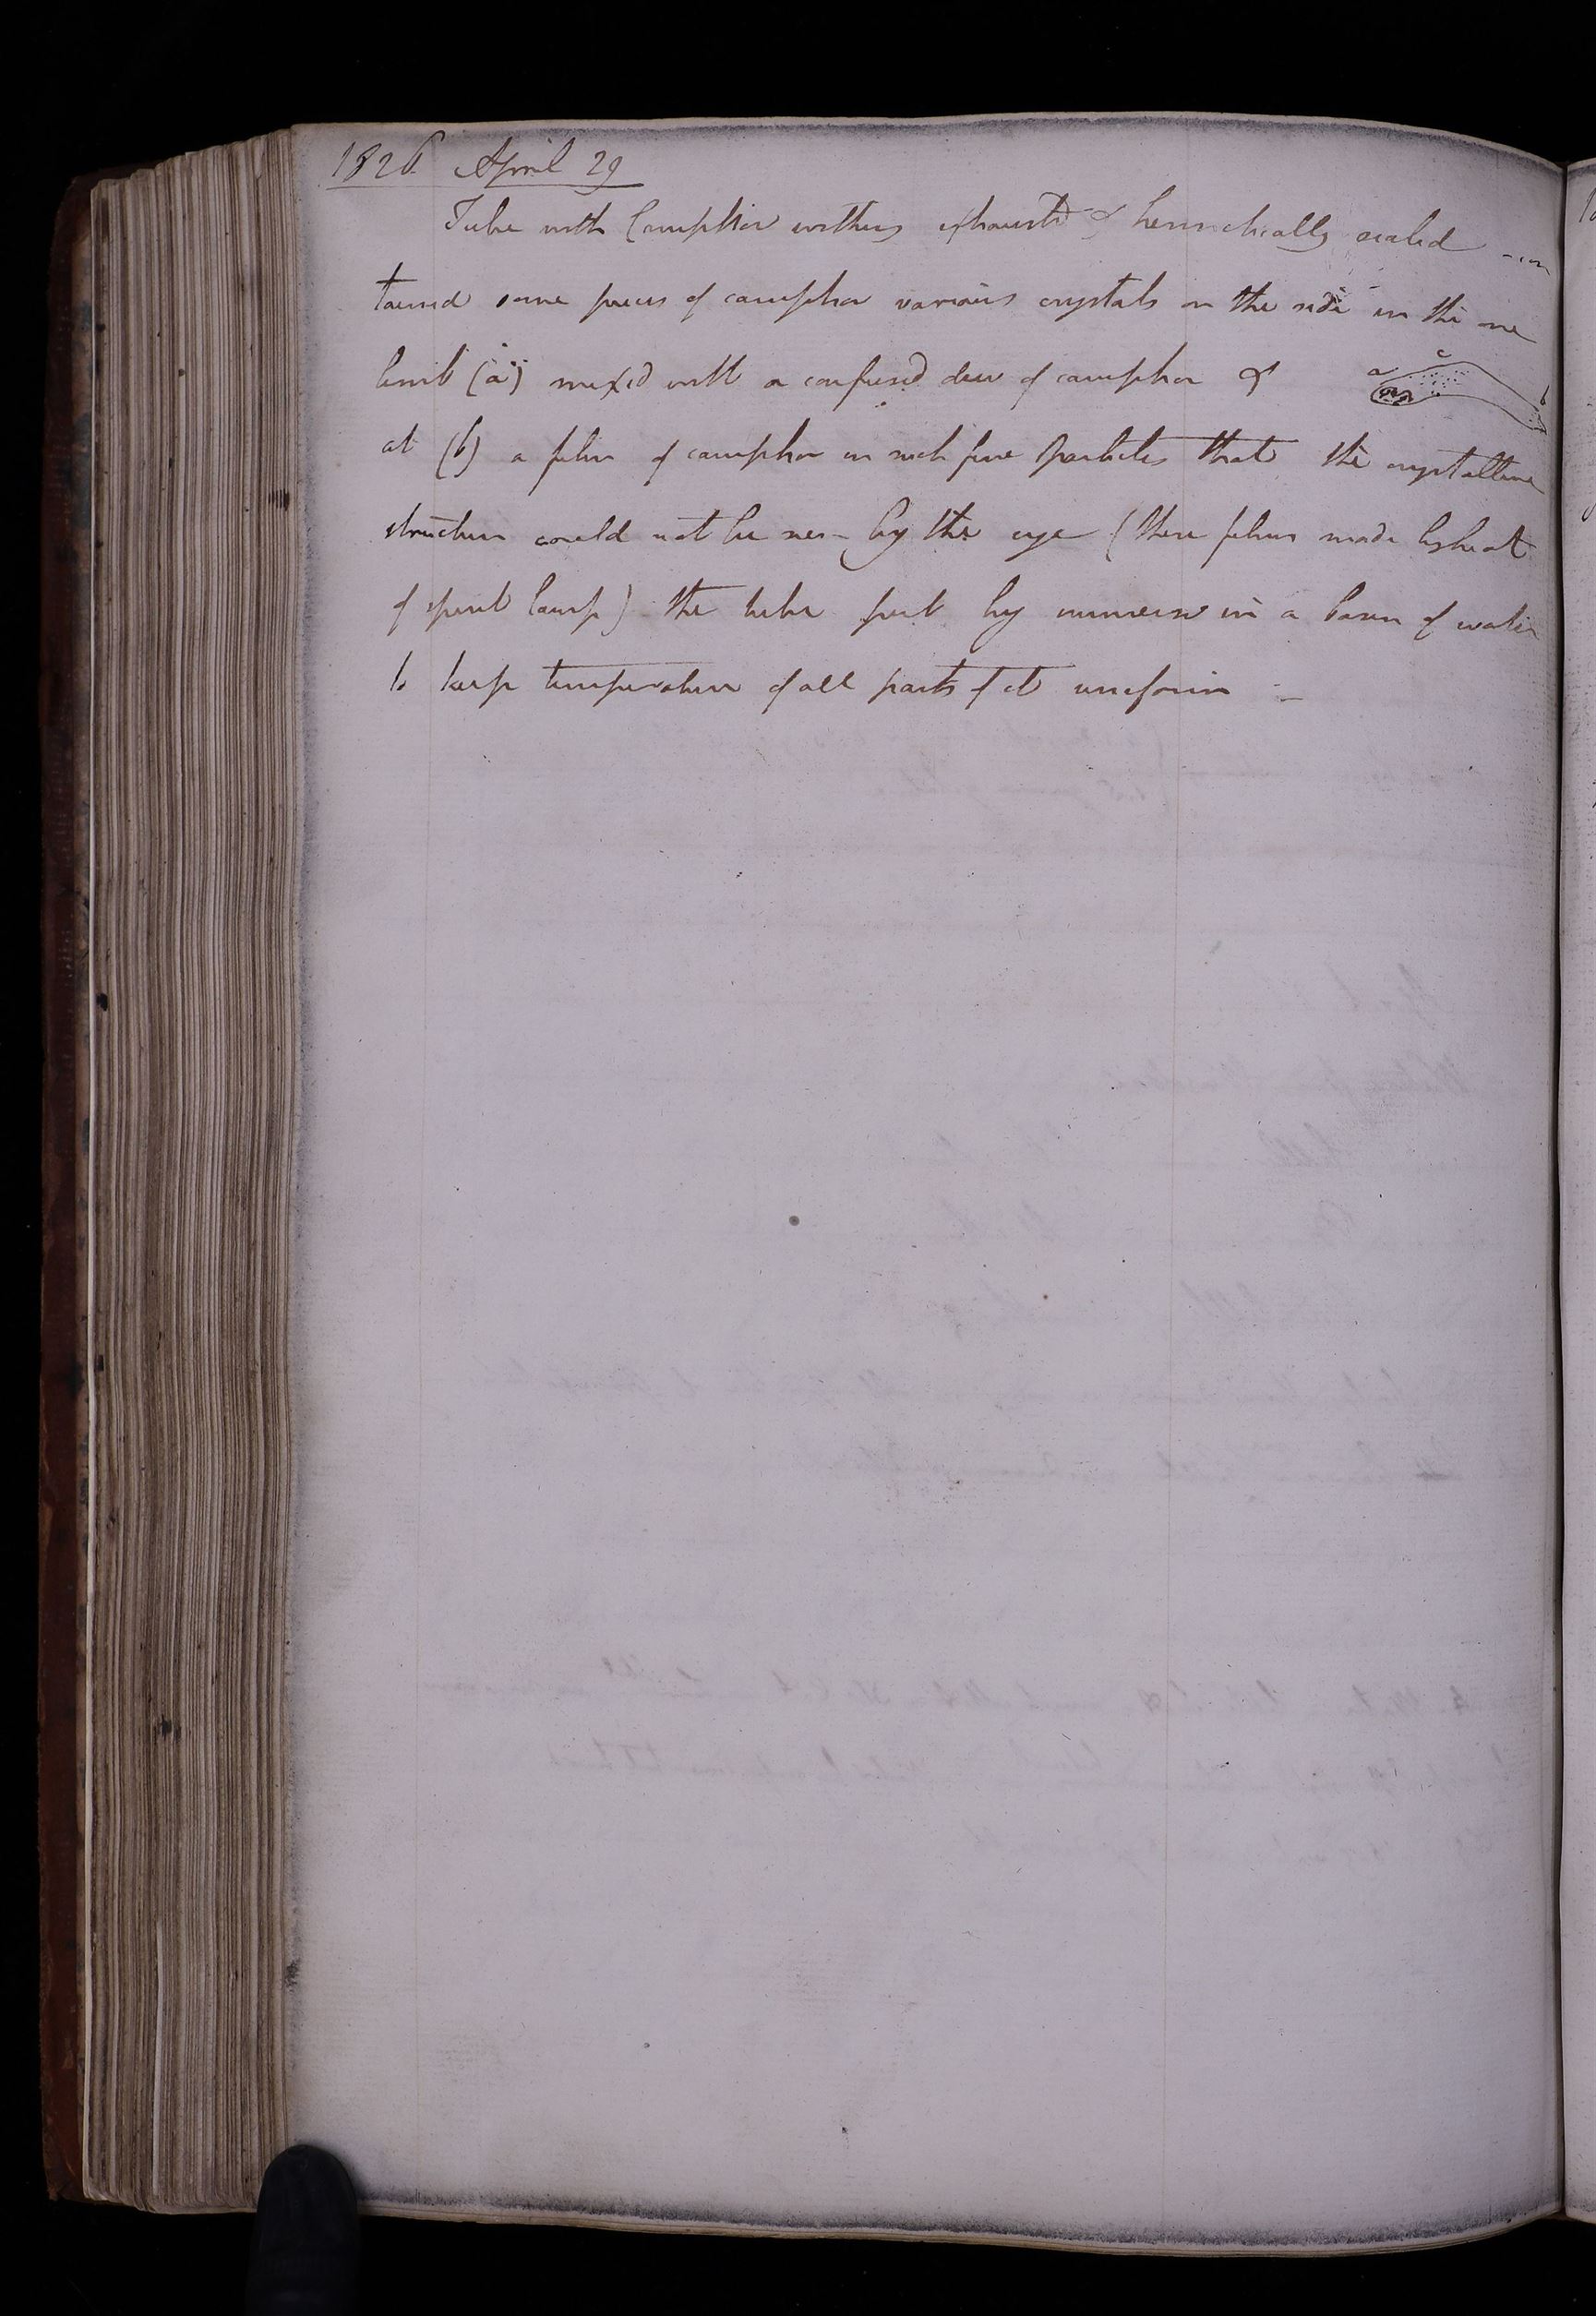 1826 April 29
Tube with Camphor within exhausted & hermetically sealed con
tained some pieces of camphor various crystals on the side in the one
limb (a) mixed with a confused dew of camphor &
a c b
at (b) a film of camphor in such fine particles that the crystalline
structure could not be seen by the eye (these films made by heat
of spirit lamp) the tube put by immersed in a basin of water
to keep temperature of all parts of it uniform -